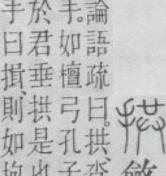 論語疏曰。拱沓
手。如檀弓孔子
於君垂拱是也
手曰揖則如